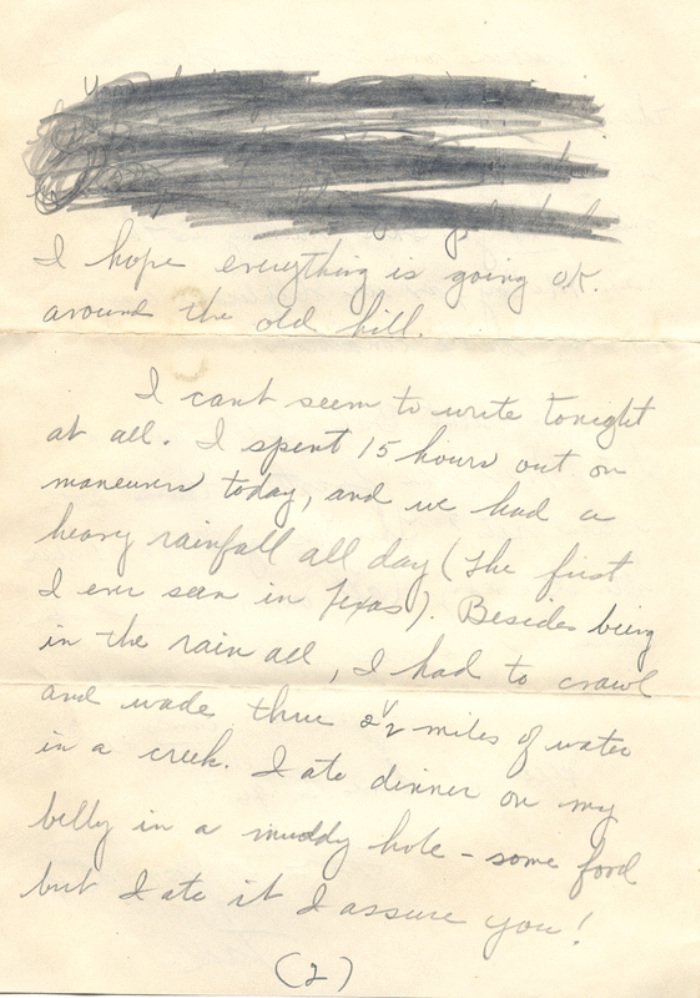 I hope everything is going OK.
around the old hill.
I cant seem to write tonight
at all. I spent 15 hours out on
maneuvers today, and we had a
heavy rainfall all day (The first
I ever seen in Texas). Besides being
in the rain all, I had to crawl
and wade thru 2 1/2 miles of water
in a creek. I ate dinner on my
belly in a muddy hole - some food
but I ate it I assure you!
(2)